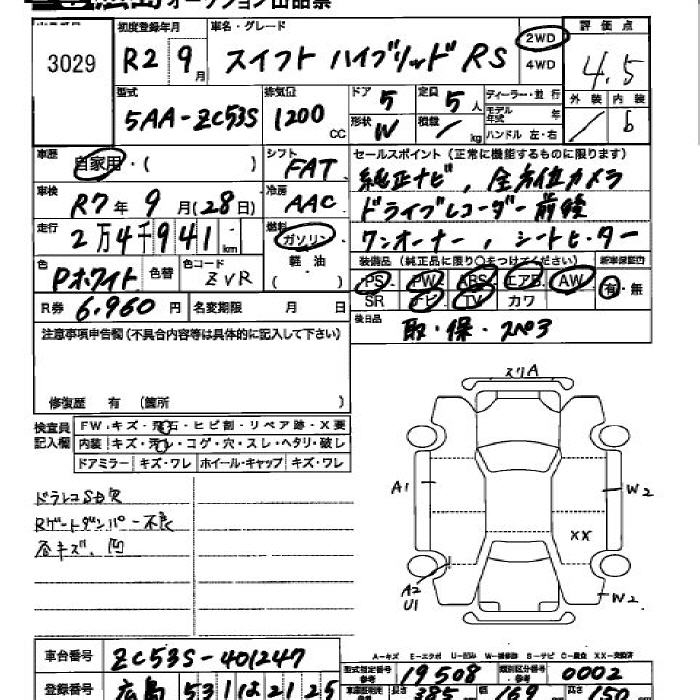 広島オークション出品票
3029
初度登録年月 R2 9月
車名・グレード スイフト ハイブリッド RS
2WD
4WD
評価点 4.5
型式 5AA-ZC53S
排気量 1200 CC
ドア 5
形状 W
定員 5人
積載 / kg
ディーラー・並行
モデル年式 年
ハンドル 左・右
外装 /
内装 b
車歴 自家用・( )
シフト FAT
セールスポイント(正常に機能するものに限ります)
純正ナビ, 全方位カメラ
車検 R7年 9月(28日)
冷房 AAC
ドライブレコーダー前後
走行 2万4千941 km
燃料 ガソリン・軽・油 ( )
ワンオーナー, シートヒーター
色 Pホワイト
色替
色コード ZVR
装備品(純正品に限り○をつけてください)
新車保証書 有・無
PS PW ABS エアB. AW
SR ナビ TV カワ
R券 6,960円
名変期限 月 日
後日品 取・保・スペ3
注意事項申告欄(不具合内容等は具体的に記入して下さい)
修復歴 有 (箇所 )
検査員記入欄
FW キズ・飛石・ヒビ割・リペア跡・X要
内装 キズ・汚レ・コゲ・穴・スレ・ヘタリ・破レ
ドアミラー キズ・ワレ ホイール・キャップ キズ・ワレ
ドラレコSD欠
Rゲートダンパー不良
各キズ、凹
スリA
A1
W2
XX
A2
U1
W2
A-キズ E-エクボ U-凹み W-補修跡 S-サビ C-腐食 XX-交換済
車台番号 ZC53S-401247
型式指定番号 参考 19508
類別区分番号 参考 0002
登録番号 広島 531 は 2125
長さ 385 cm 幅 169 cm 高さ 150 cm